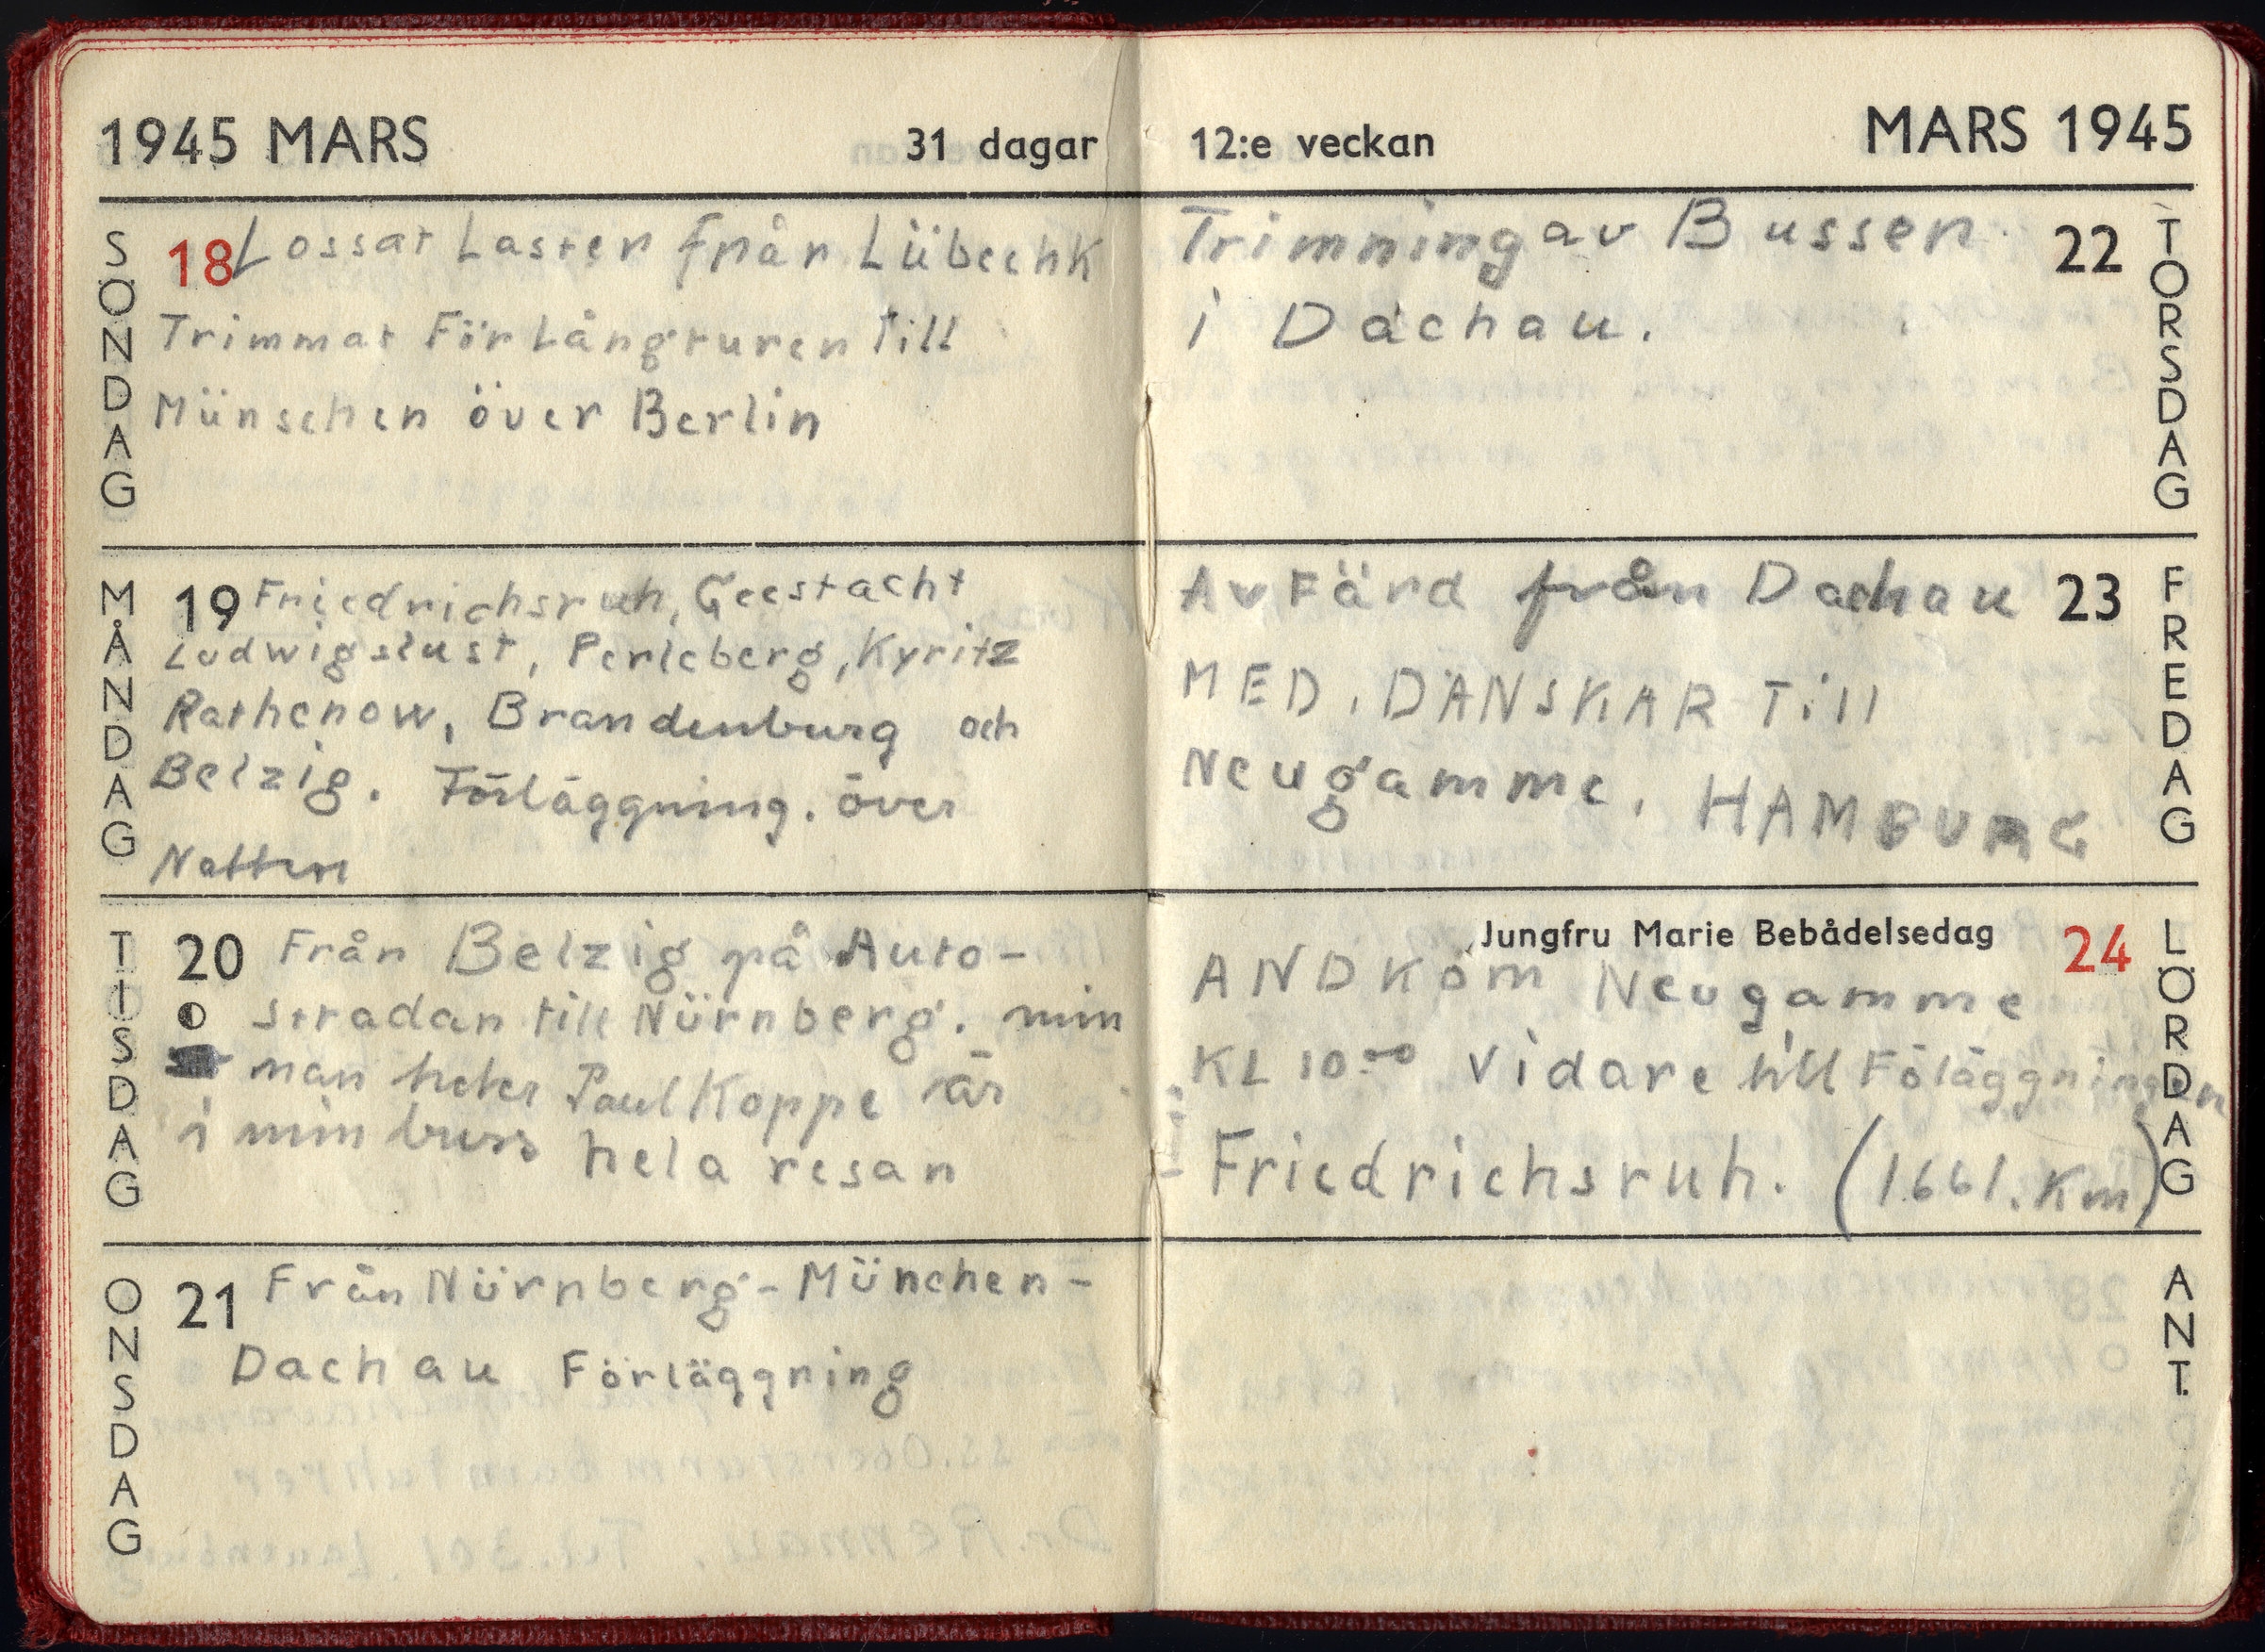 1945 MARS 31 dagar
SÖNDAG
18 Lossat Lasten från Lübechk
Trimmat För Långturen Till
Münschen över Berlin
MÅNDAG
19 Friedrichsruh, Geestacht
Ludwigslust, Perleberg, Kyritz
Rathenow, Brandenburg och
Belzig. Förläggning. över
Natten
TISDAG
20 Från Belzig på Auto-
stradan till Nürnberg. min
man heter Paul Koppe är
i min buss hela resan
ONSDAG
21 Från Nürnberg - München -
Dachau Förläggning
12:e veckan MARS 1945
Trimning av Bussen 22
i Dachau.
TORSDAG
AvFärd från Dachau 23
MED. DÄNSKAR Till
Neugamme. HAMBURG
FREDAG
Jungfru Marie Bebådelsedag 24
ANDKÖM Neugamme
KL 10.00 Vidare till Föläggningen
Friedrichsruh. (1661. Km)
LÖRDAG
ANT.